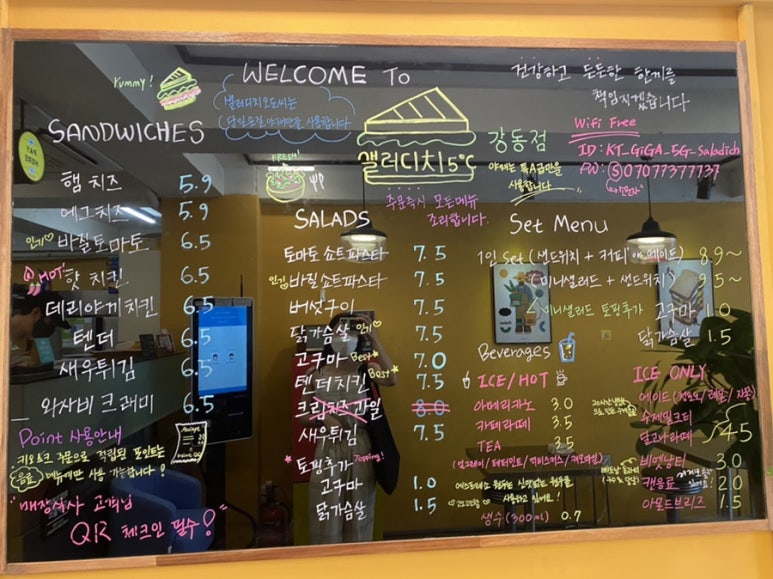 yummy!
WELCOME To
건강하고 든든한 한끼를
책임지겠습니다
샐러디치오도씨는
당일손질야채만을 사용합니다
SANDWICHES
햄치즈 5.9
에그치즈 5.9
인기 바질토마토 6.5
HOT! 핫 치킨 6.5
데리야끼치킨 6.5
텐더 6.5
새우튀김 6.5
와사비 크래미 6.5
Point 사용안내
키오스크 주문으로 적립된 포인트는
음료 메뉴에만 사용 가능합니다!
매장식사 고객님
QR 체크인 필수!
FRESH!
샐러디치5℃
강동점
야채는 특수급만을
사용합니다
주문즉시 모든메뉴
조리합니다.
Wifi Free
ID: KT_GiGA_5G_Saladich
PW: 07077377737
SALADS
토마토 쇼트파스타 7.5
인기 바질쇼트파스타 7.5
버섯구이 7.5
닭가슴살 인기 7.5
고구마 Best 7.0
텐더치킨 Best 7.5
크림치즈과일 8.0
새우튀김 7.5
토핑추가 Topping!
고구마 1.0
닭가슴살 1.5
Set Menu
1인 Set (샌드위치 + 커피 or 에이드) 8.9~
(미니샐러드 + 샌드위치) 9.5~
미니샐러드 토핑추가 고구마 1.0
닭가슴살 1.5
Beverages
ICE/HOT
아메리카노 3.0
카페라떼 3.5
TEA 3.5
생수(300ml) 0.7
ICE ONLY
에이드(청포도/레몬/자몽)
수제밀크티
달고나라떼
4.5
비엣남티 3.0
캔음료 2.0
아몬드브리즈 1.5